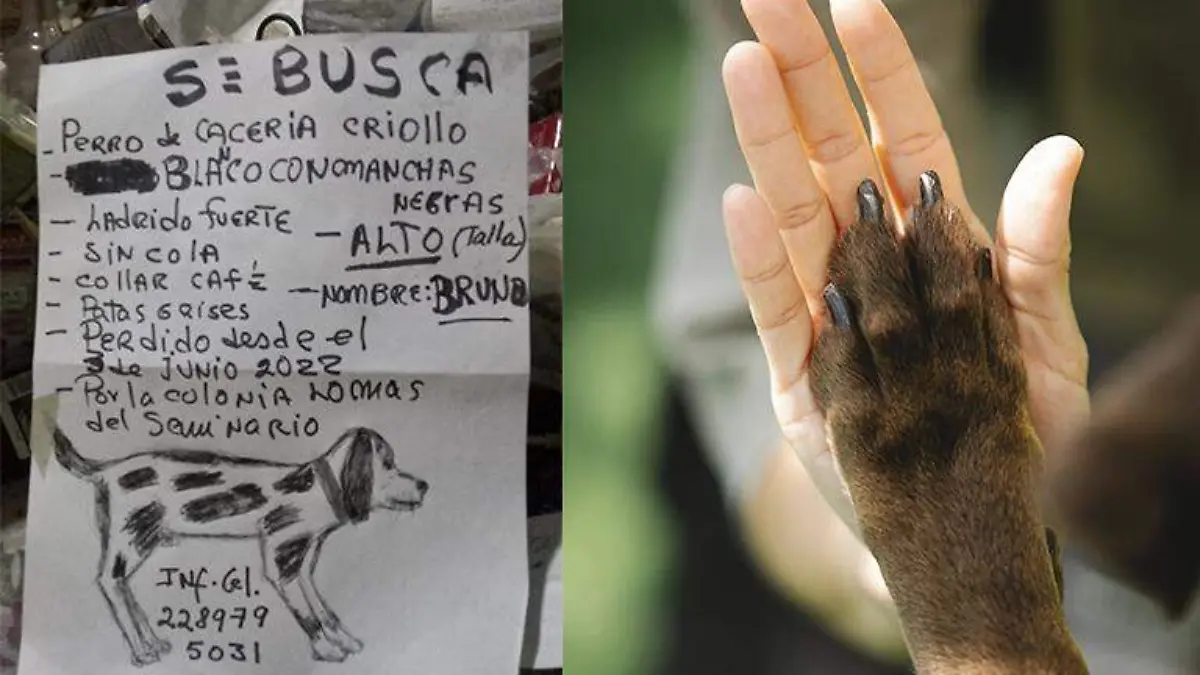 SE BUSCA
- PERRO de CACERIA CRIOLLO
- BLANCO CON MANCHAS
NEGRAS
- LADRIDO FUERTE
- ALTO (Talla)
- SIN COLA
- COLLAR CAFÉ
- NOMBRE: BRUNO
- Patas GRISES
- PERDIDO desde el
3 de JUNIO 2022
- Por la COLONIA LOMAS
del SEMINARIO
INF. Cel.
228979
5031